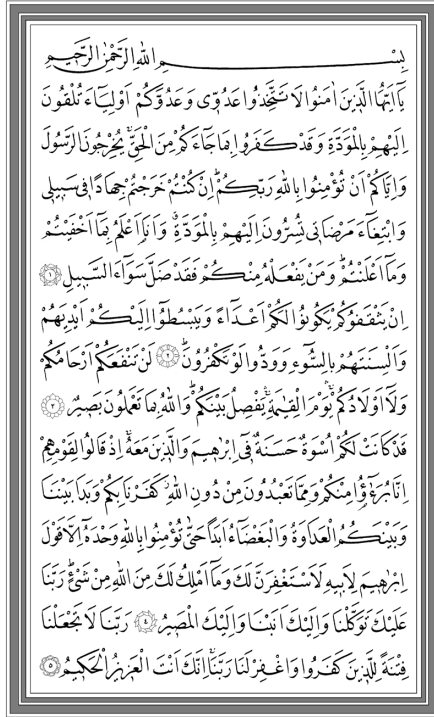 بِسْمِ اللهِ الرَّحْمٰنِ الرَّحِيمِ
يَٓا اَيُّهَا الَّذِينَ اٰمَنُوا لَا تَتَّخِذُوا عَدُوِّى وَعَدُوَّكُمْ اَوْلِيَٓاءَ تُلْقُونَ
اِلَيْهِمْ بِالْمَوَدَّةِ وَقَدْ كَفَرُوا بِمَا جَٓاءَكُمْ مِنَ الْحَقِّۚ يُخْرِجُونَ الرَّسُولَ
وَاِيَّاكُمْ اَنْ تُؤْمِنُوا بِاللهِ رَبِّكُمْۜ اِنْ كُنْتُمْ خَرَجْتُمْ جِهَادًا فِى سَبِيلِى
وَابْتِغَٓاءَ مَرْضَاتِى تُسِرُّونَ اِلَيْهِمْ بِالْمَوَدَّةِۗ وَاَنَا۬ اَعْلَمُ بِمَٓا اَخْفَيْتُمْ
وَمَٓا اَعْلَنْتُمْۜ وَمَنْ يَفْعَلْهُ مِنْكُمْ فَقَدْ ضَلَّ سَوَٓاءَ السَّبِيلِ ﴿١﴾
اِنْ يَثْقَفُوكُمْ يَكُونُوا لَكُمْ اَعْدَٓاءً وَيَبْسُطُٓوا اِلَيْكُمْ اَيْدِيَهُمْ
وَاَلْسِنَتَهُمْ بِالسُّٓوءِ وَوَدُّوا لَوْ تَكْفُرُونَۜ ﴿٢﴾ لَنْ تَنْفَعَكُمْ اَرْحَامُكُمْ
وَلَٓا اَوْلَادُكُمْۚ يَوْمَ الْقِيٰمَةِۚ يَفْصِلُ بَيْنَكُمْۜ وَاللهُ بِمَا تَعْمَلُونَ بَصِيرٌ ﴿٣﴾
قَدْ كَانَتْ لَكُمْ اُسْوَةٌ حَسَنَةٌ فِٓى اِبْرٰهِيمَ وَالَّذِينَ مَعَهُۚ اِذْ قَالُوا لِقَوْمِهِمْ
اِنَّا بُرَءٰٓؤُا مِنْكُمْ وَمِمَّا تَعْبُدُونَ مِنْ دُونِ اللهِۘ كَفَرْنَا بِكُمْ وَبَدَا بَيْنَنَا
وَبَيْنَكُمُ الْعَدَاوَةُ وَالْبَغْضَٓاءُ اَبَدًا حَتّٰى تُؤْمِنُوا بِاللهِ وَحْدَهُٓ اِلَّا قَوْلَ
اِبْرٰهِيمَ لِاَبِيهِ لَاَسْتَغْفِرَنَّ لَكَ وَمَٓا اَمْلِكُ لَكَ مِنَ اللهِ مِنْ شَىْءٍۜ رَبَّنَا
عَلَيْكَ تَوَكَّلْنَا وَاِلَيْكَ اَنَبْنَا وَاِلَيْكَ الْمَصِيرُ ﴿٤﴾ رَبَّنَا لَا تَجْعَلْنَا
فِتْنَةً لِلَّذِينَ كَفَرُوا وَاغْفِرْ لَنَا رَبَّنَاۚ اِنَّكَ اَنْتَ الْعَزِيزُ الْحَكِيمُ ﴿٥﴾